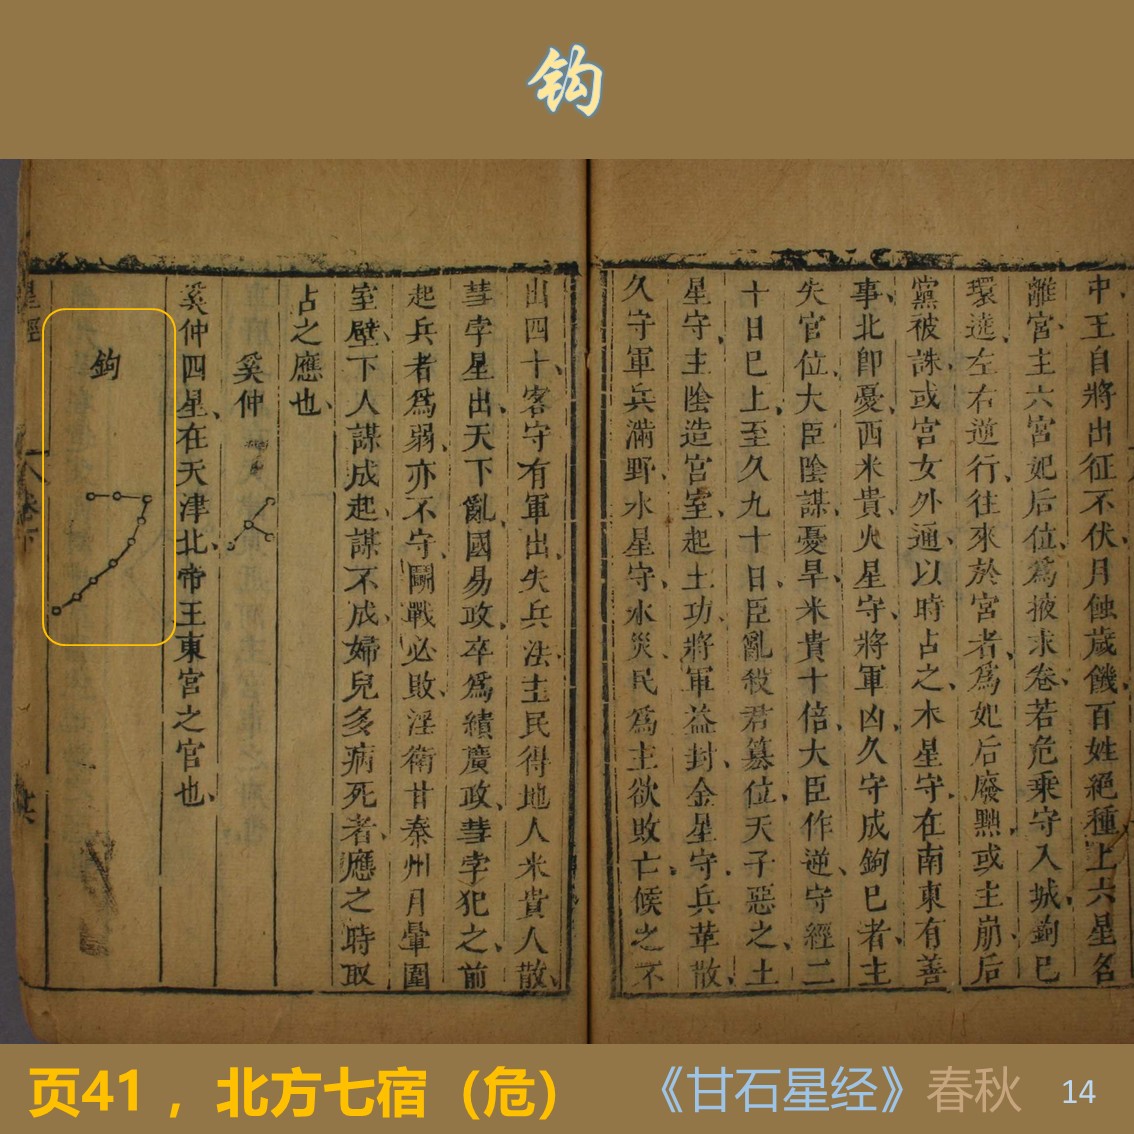 钩
中王自將出征不伏月蝕歲饑百姓絕種上六星名
離宮主六宮妃后位為掖求卷若危乘守入城鉤巳
環遶左右逆行往來於宮者為妃后廢黜或主崩后
黨被誅或宮女外通以時占之木星守在南東有善
事北卽憂西米貴火星守將軍凶久守成鉤巳者主
失官位大臣陰謀憂旱米貴十倍大臣作逆守經二
十日巳上至久九十日臣亂殺君篡位天子惡之土
星守主陰造宮室起土功將軍益封金星守兵革散
久守軍兵滿野水星守水災民為主欲敗亡候之不
出四十客守有軍出失兵法主民得地人米貴人散
彗孛星出天下亂國易政卒為績廣政彗孛犯之前
起兵者為弱亦不守鬭戰必敗淫衛甘秦州月暈圍
室壁下人謀成起謀不成婦兒多病死者應之時取
占之應也
奚仲
奚仲四星在天津北帝王東宮之官也
鉤
星經
卷下
页41，北方七宿（危）
《甘石星经》春秋
14